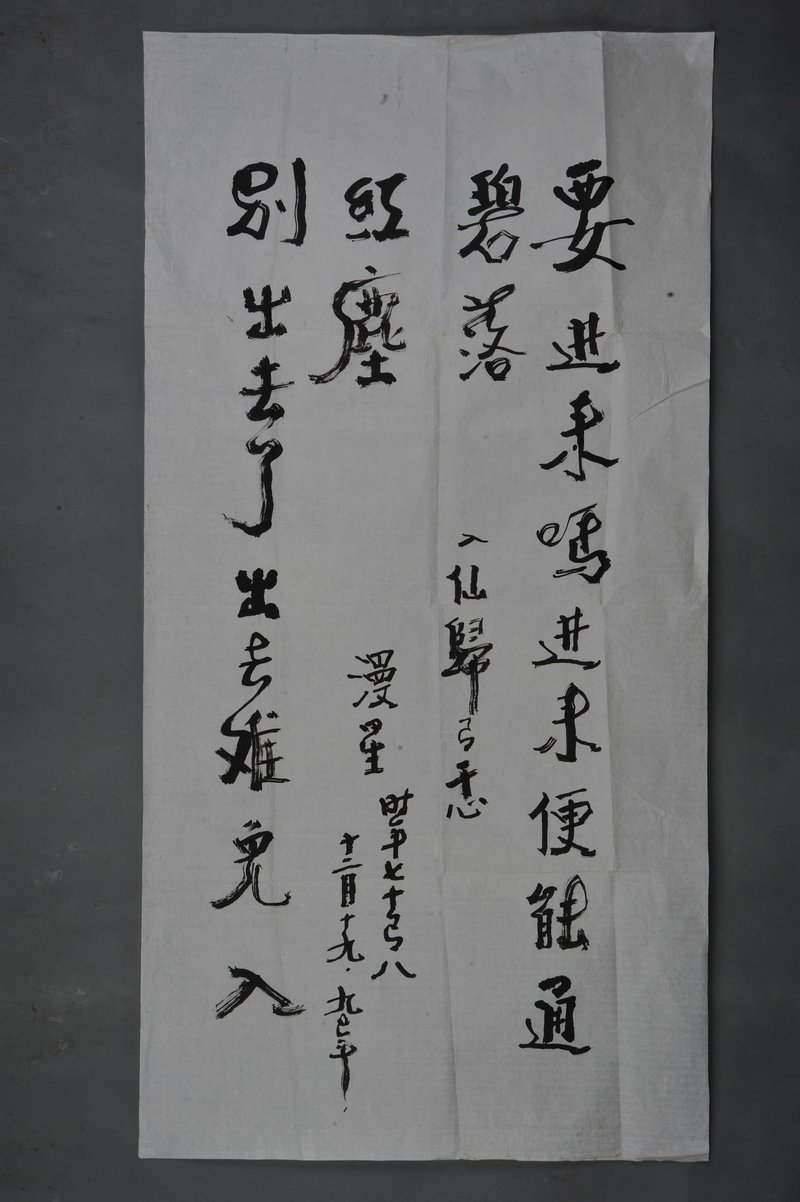 要进来吗进来便能通
碧落
入仙歸
红塵
漫星
时年七十有八
十二月十九·九 年
别出去了出去难免入